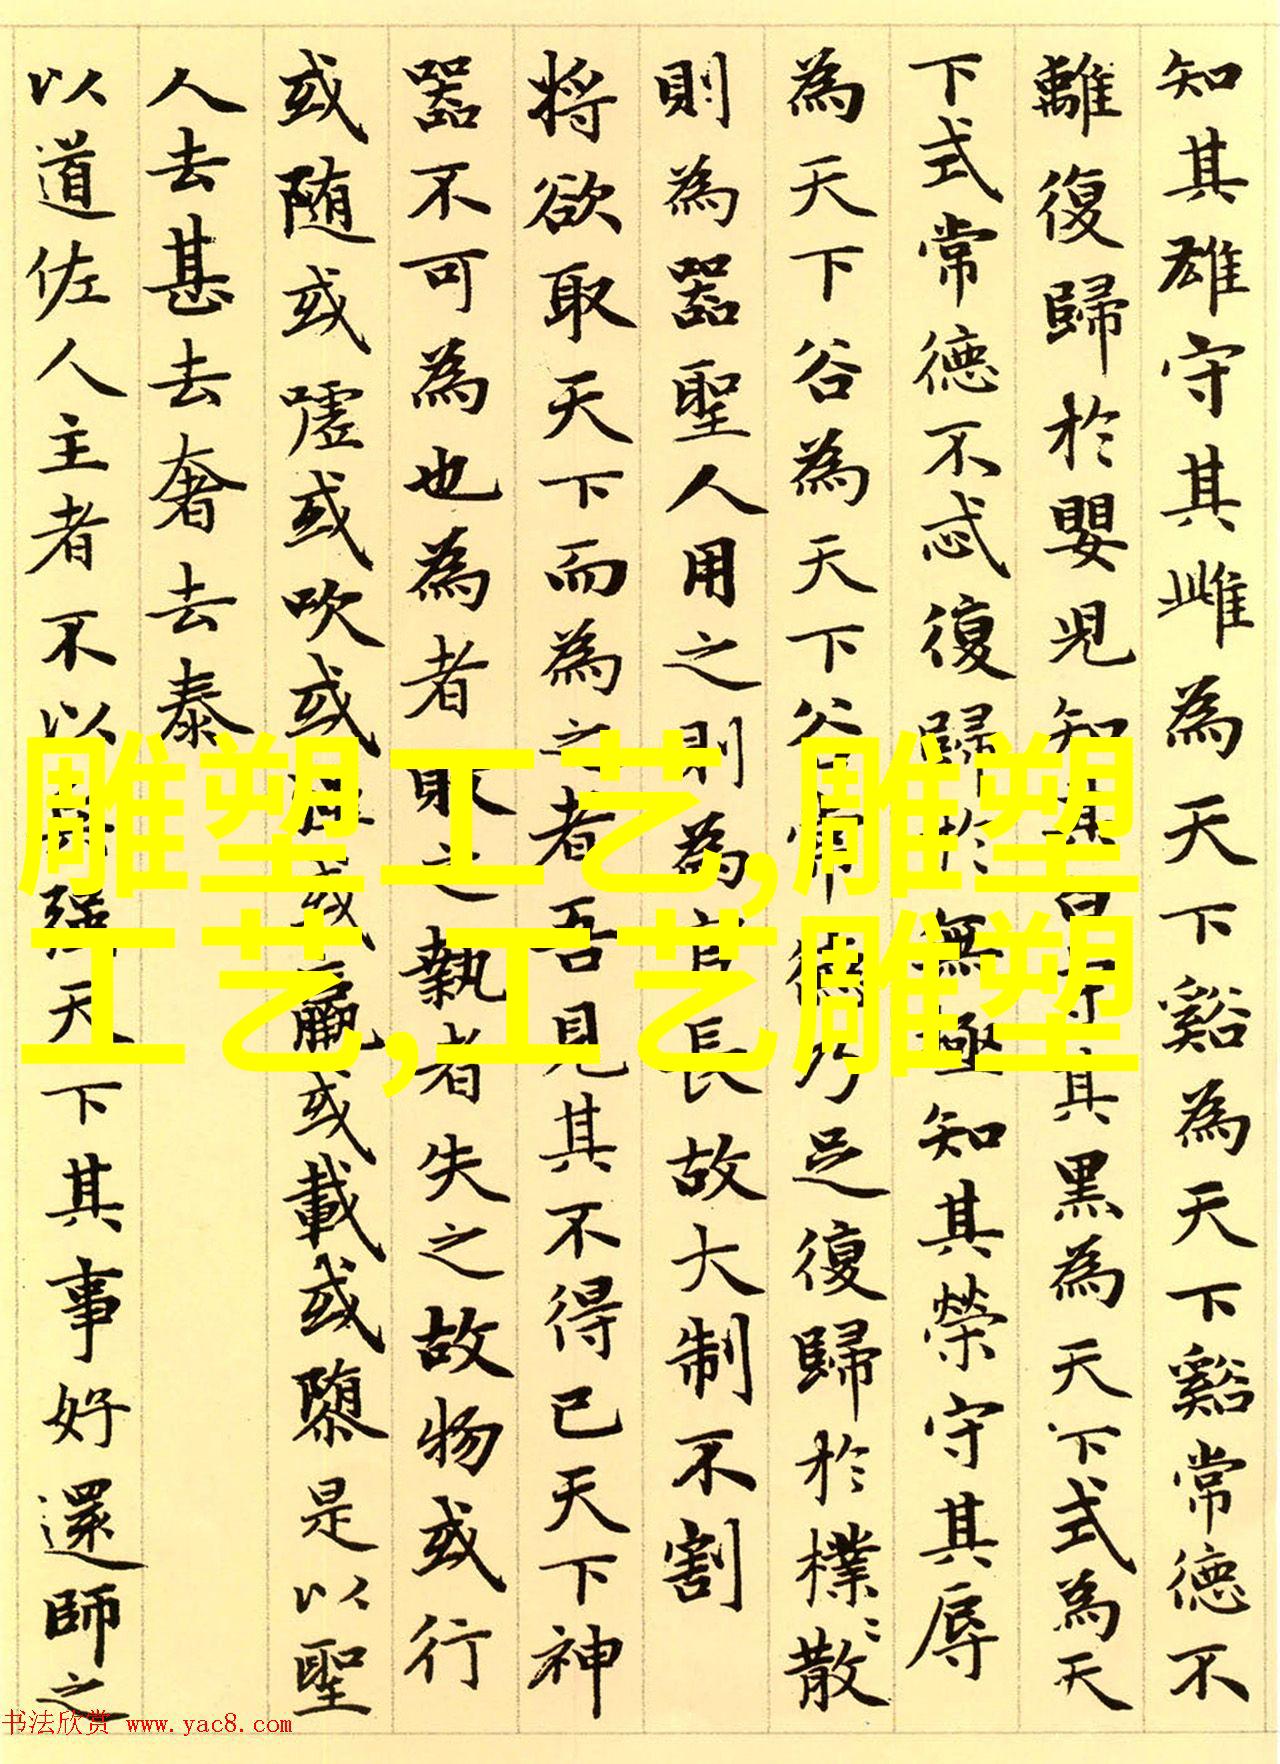 知其雄守其雌為天下谿為天下谿常德不
離復歸於嬰兒知其守其黑為天下式為天
下式常德不忒復歸於無極知其榮守其辱
為天下谷為天下谷常德乃足復歸於樸〻散
則為器聖人用之則為官長故大制不割
將欲取天下而為之者吾見其不得已天下神
器不可為也為者敗之執者失之故物或行
或随或噓或吹或或羸或載或隳是以聖
人去甚去奢去泰
以道佐人主者不以兵強天下其事好還師之
雕塑工艺,雕塑
工艺,工艺雕塑
书法欣赏 www.yac8.com